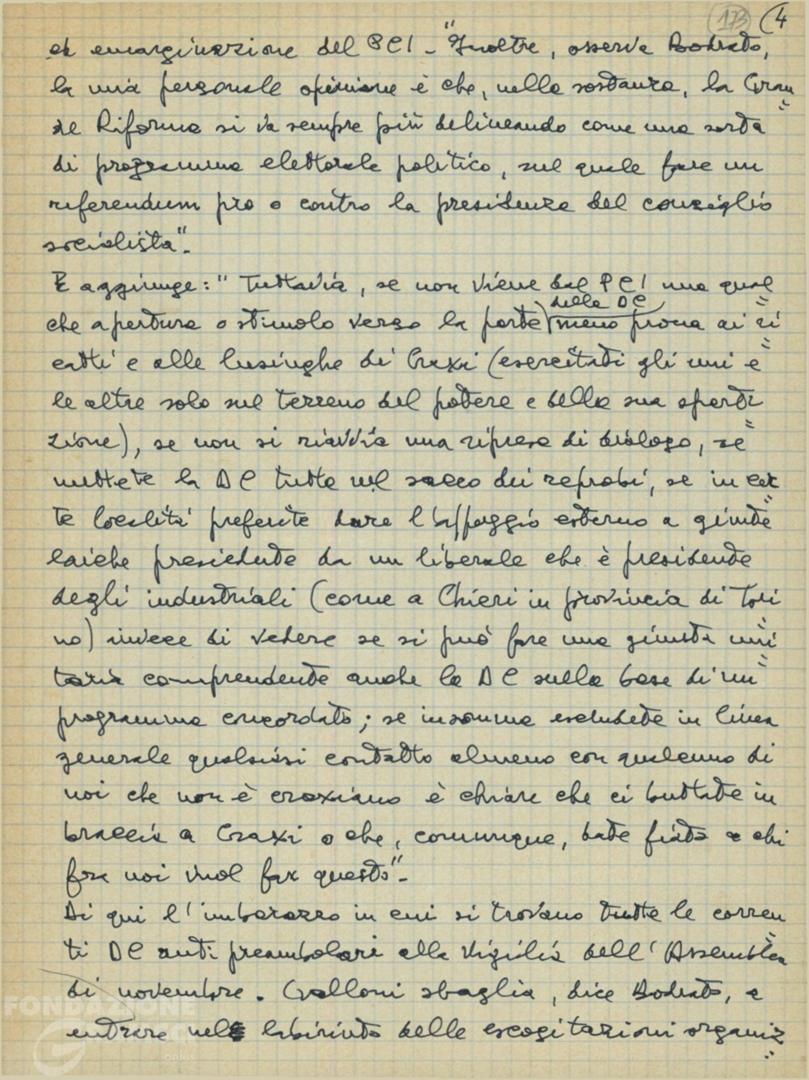 173 (4
ed emarginazione del PCI – "Inoltre, osserva Bodrato,
la mia personale opinione è che, nella sostanza, la Gran
de Riforma si va sempre più delineando come una sorta
di programma elettorale politico, sul quale fare un
referendum pro o contro la presidenza del consiglio
socialista".
E aggiunge: "Tuttavia, se non viene dal PCI una qual
che apertura o stimolo verso la parte della DC meno prona ai ri
catti e alle lusinghe di Craxi (esercitati gli uni e
le altre solo sul terreno del potere e della sua sparti
zione), se non si riavvia una ripresa di dialogo, se
mettete la DC tutta nel sacco dei reprobi, se in cer
te località preferite dare l'appoggio esterno a giunte
laiche presiedute da un liberale che è presidente
degli industriali (come a Chieri in provincia di Tori
no) invece di vedere se si può fare una giunta uni
taria comprendente anche la DC sulla base di un
programma concordato; se insomma escludete in linea
generale qualsiasi contatto almeno con qualcuno di
noi che non è craxiano è chiaro che ci buttate in
braccia a Craxi o che, comunque, date fiato a chi
fra noi vuol far questo"–
Di qui l'imbarazzo in cui si trovano tutte le corren
ti DC anti preambolari alla vigilia dell'Assemblea
di novembre. Galloni sbaglia, dice Bodrato, a
entrare nel labirinto delle escogitazioni organiz
FONDAZIONE